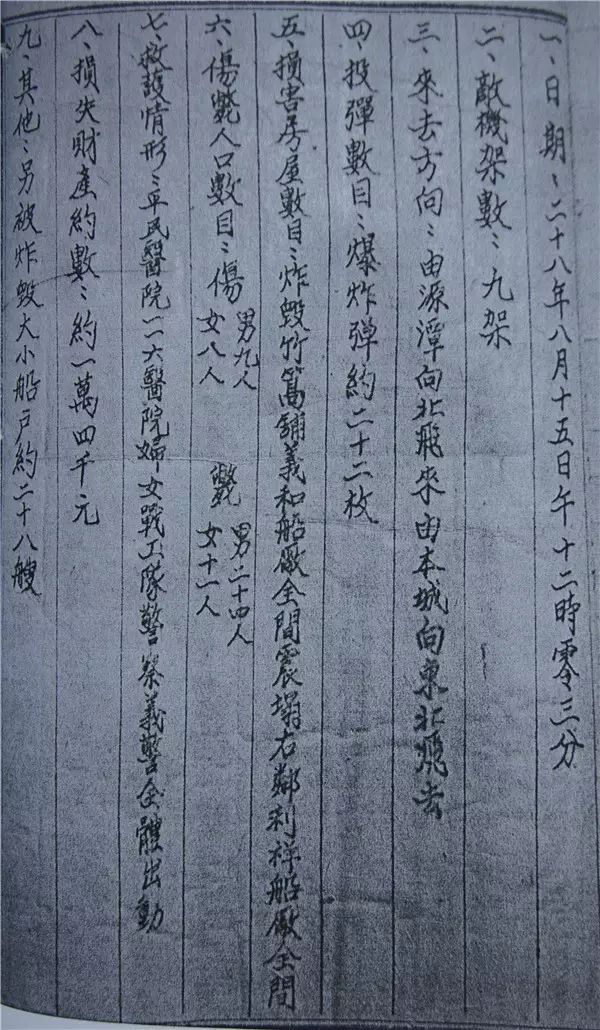 一、日期：二十八年八月十五日午十二時零三分
二、敵機架數：九架
三、來去方向：由源潭向北飛來由本城向東北飛去
四、投彈數目：爆炸彈約二十二枚
五、損害房屋數目：炸毀竹篙舖義和船廠全間震塌右鄰利祥船廠全間
六、傷斃人口數目：傷 男九人 女八人 斃 男二十四人 女十一人
七、救護情形：平民醫院一一六醫院婦女戰工隊警察義警全體出動
八、損失財產約數：約一萬四千元
九、其他：另被炸毀大小船戶約二十八艘